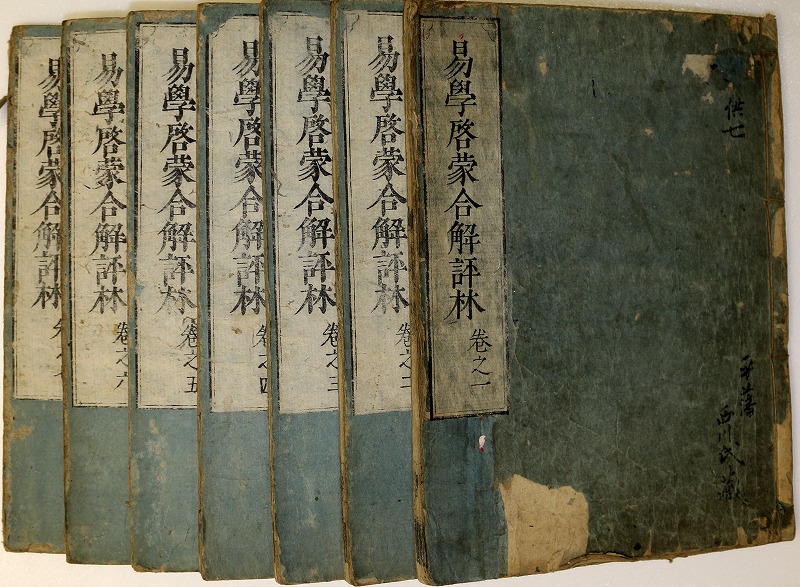 供七
西川氏藏
易學啓蒙合解評林
卷之一
易學啓蒙合解評林
卷之二
易學啓蒙合解評林
卷之三
易學啓蒙合解評林
卷之四
易學啓蒙合解評林
卷之五
易學啓蒙合解評林
卷之六
易學啓蒙合解評林
卷之